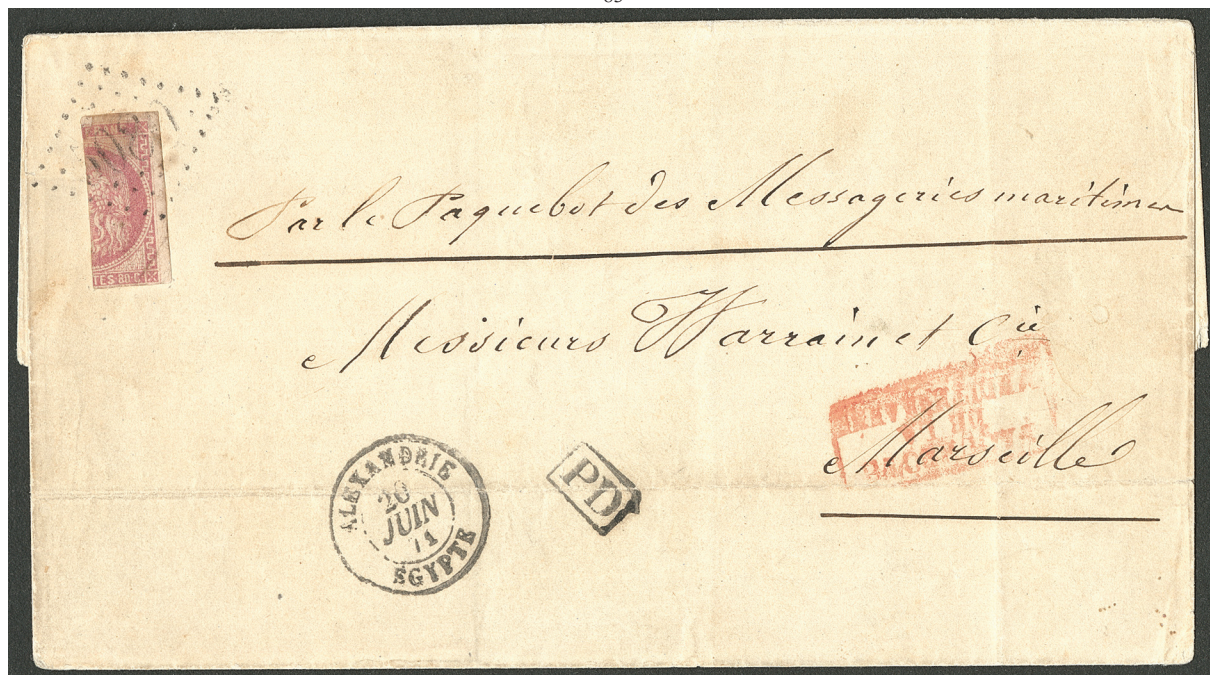 Par le Paquebot des Messageries maritimes
Messieurs Warrain et Cie
Marseille
TES·80·C
ALEXANDRIE
20
JUIN
71
EGYPTE
PD